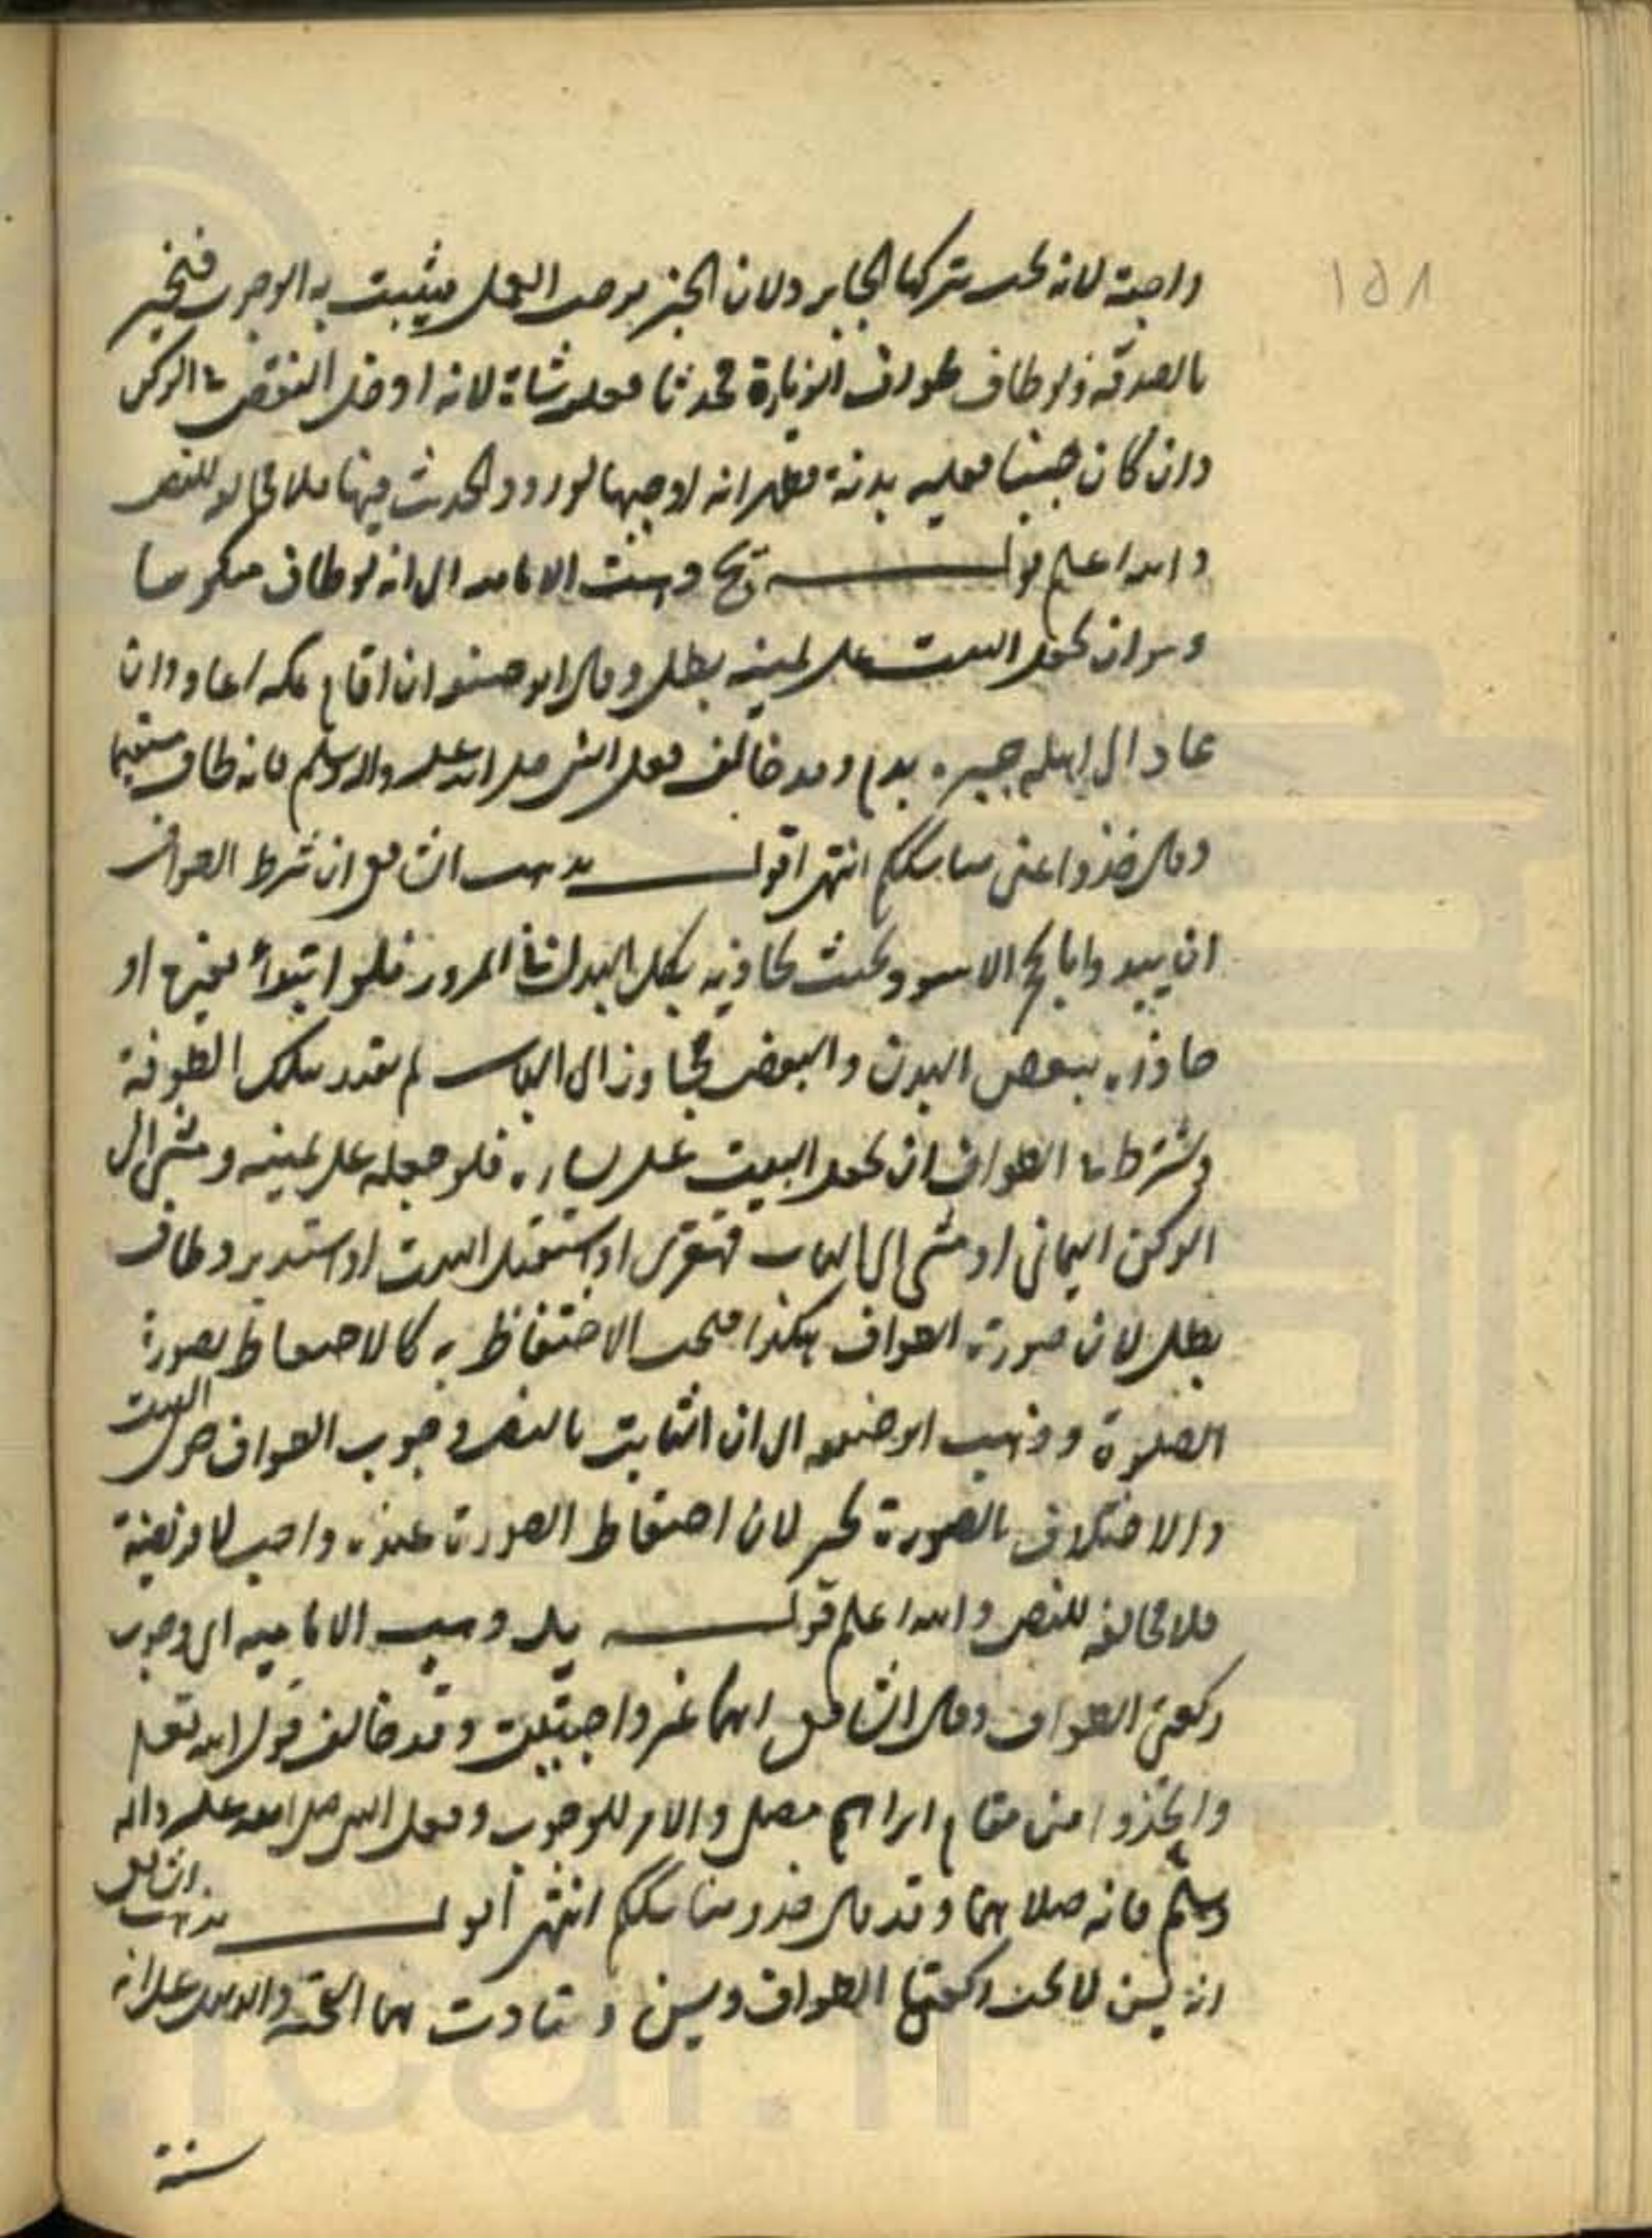 ١٥٨
واجبة لانه يجب بتركها الجابر ولان الخبر يوجب العمل فيثبت به الوجوب فتجبر
بالصدقة ولو طاف طواف الزيارة محدثا فعليه شاة لانه ادخل النقص في الركن
وان كان جنبا فعليه بدنة فظهر انه اوجبها لورود الحديث فيها فلا مخالفة للنص
والله اعلم قولـــه يح ذهبت الامامية الى انه لو طاف منكوسا
وهو ان يجعل البيت على يمينه بطل وقال ابو حنيفة ان اقام بمكة اعاد وان
عاد الى اهله جبره بدم وقد خالف فعل النبي صلى الله عليه واله وسلم فانه طاف مستقيما
وقال خذوا عني مناسككم انتهى اقولـــ مذهب الشافعي ان شرط الطواف
ان يبدوا بالحجر الاسود بحيث يحاذيه بكل البدن في المرور فلو ابتدأ بغيره او
حاذاه ببعض البدن والبعض مجاوز الى الباب لم يعتد بتلك الطوفة
ويشترط في الطواف ان يجعل البيت على يساره فلو جعله على يمينه ومشى الى
الركن اليماني او مشى الى الباب قهقرى او استقبل البيت او استدبر وطاف
بطل لان صورة الطواف هكذا فيجب الاحتفاظ به كالاحتفاظ بصورة
الصلوة وذهب ابو حنيفة الى ان الثابت بالنص وجوب الطواف حول البيت
والاختلاف بالصورة يجبر لان احتفاظ الصورة عنده واجب لا فريضة
فلا مخالفة للنص والله اعلم قولـــه يط ذهبت الامامية الى وجوب
ركعتي الطواف وقال الشافعي انهما غير واجبتين وقد خالف قول الله تعالى
واتخذوا من مقام ابراهيم مصلى والامر للوجوب وفعل النبي صلى الله عليه واله
وسلم فانه صلاهما وقد قال خذوا مناسككم انتهى اقولـــ مذهب الشافعي
انه ليس لا يجب ركعتا الطواف ويسن وتأدت بهما التحية والدليل على انه
سنة